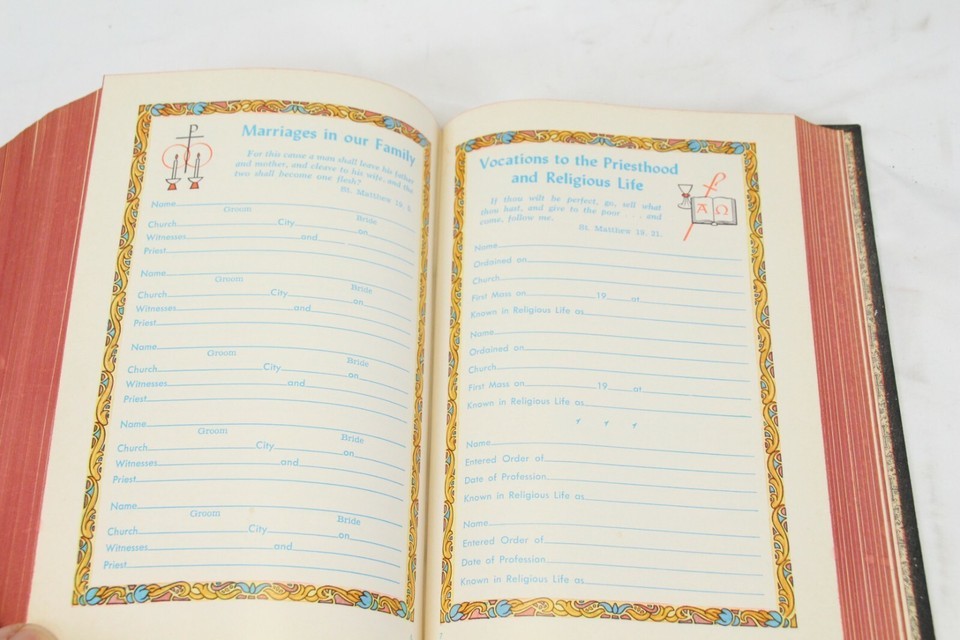 Marriages in our Family
For this cause a man shall leave his father
and mother, and cleave to his wife, and the
two shall become one flesh?
St. Matthew 19, 5.
Name
Groom Bride
Church City on
Witnesses and
Priest
Name
Groom Bride
Church City on
Witnesses and
Priest
Name
Groom Bride
Church City on
Witnesses and
Priest
Name
Groom Bride
Church City on
Witnesses and
Priest
Name
Groom Bride
Church City on
Witnesses and
Priest
Vocations to the Priesthood
and Religious Life
If thou wilt be perfect, go, sell what
thou hast, and give to the poor . . . and
come, follow me.
St. Matthew 19, 21.
Α Ω
Name
Ordained on
Church
First Mass on 19 at
Known in Religious Life as
Name
Ordained on
Church
First Mass on 19 at
Known in Religious Life as
Name
Entered Order of
Date of Profession
Known in Religious Life as
Name
Entered Order of
Date of Profession
Known in Religious Life as